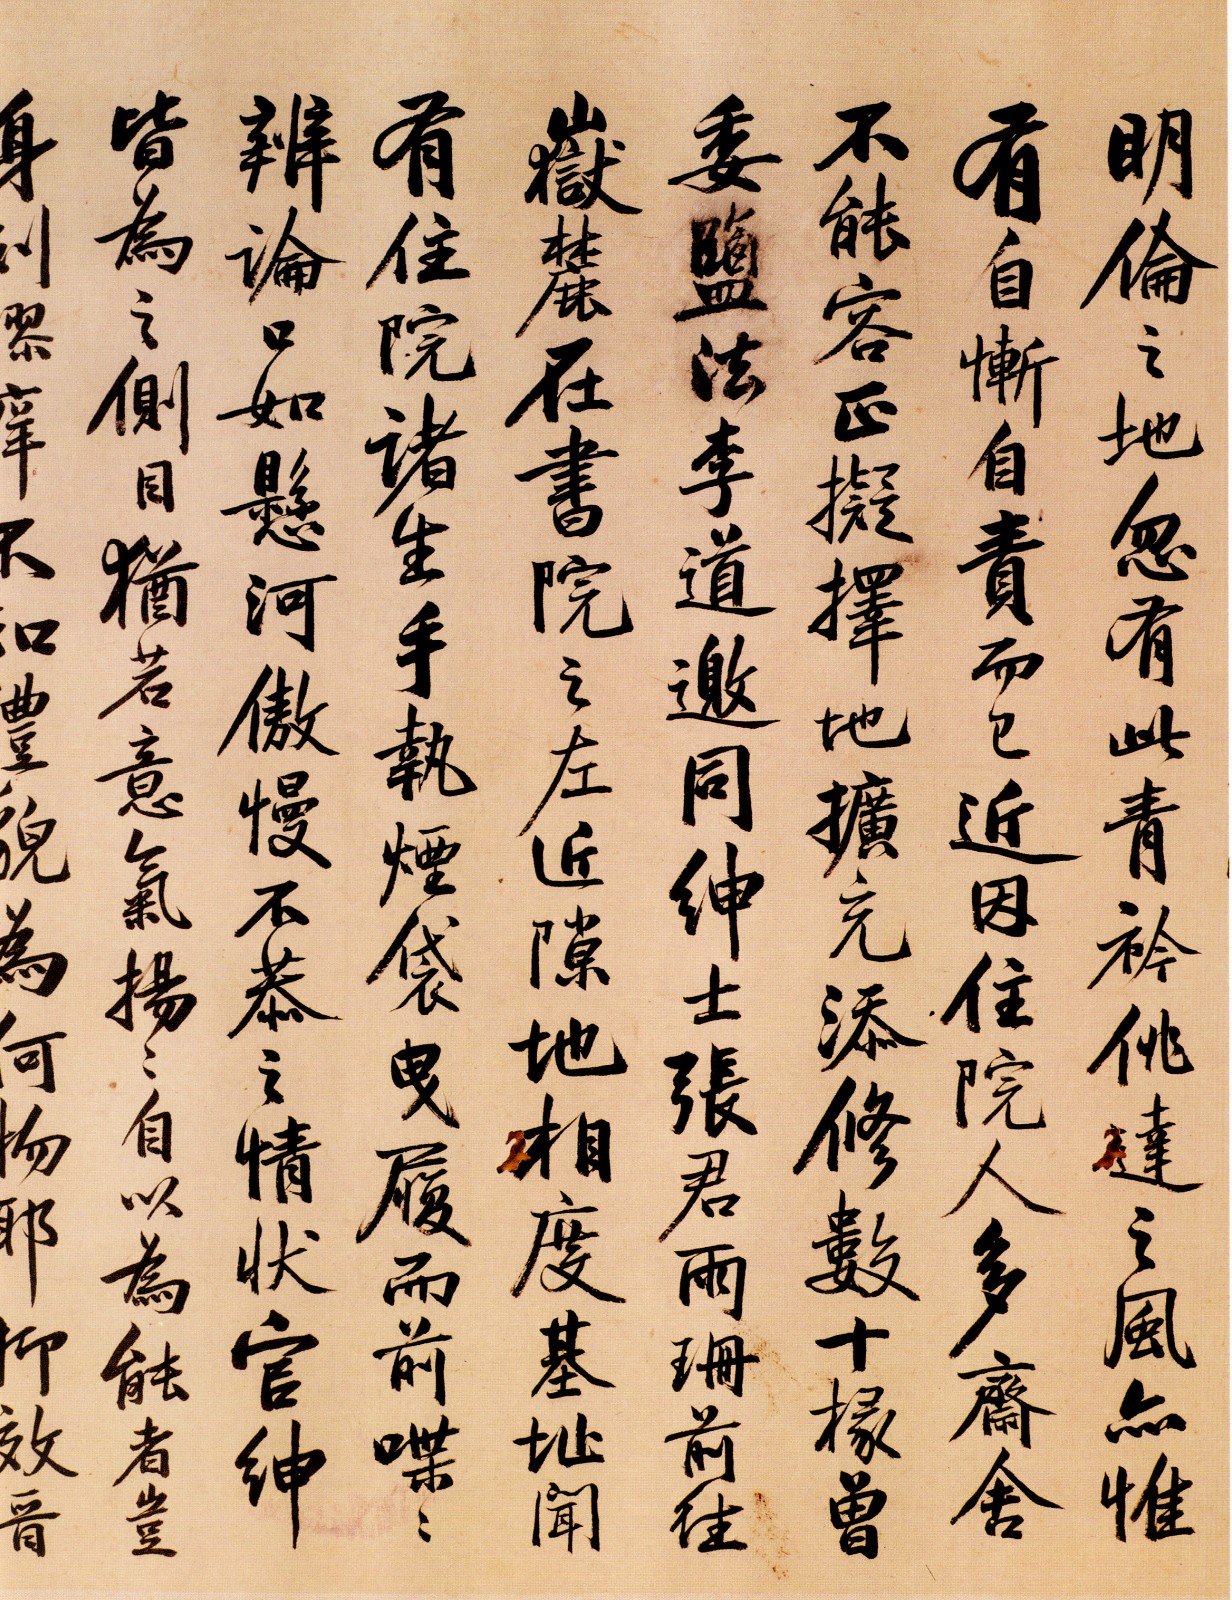 明倫之地忽有此青衿佻達之風亦惟
有自慚自責而已近因住院人多齋舍
不能容正擬擇地擴充添修數十椽曾
委鹽法李道邀同紳士張君雨珊前往
嶽麓在書院之左近隙地相度基址聞
有住院諸生手執煙袋曳履而前喋〻
辨論口如懸河傲慢不恭之情狀官紳
皆為之側目猶若意氣揚〻自以為能者豈
身列黌庠不知禮貌為何物耶抑效晉